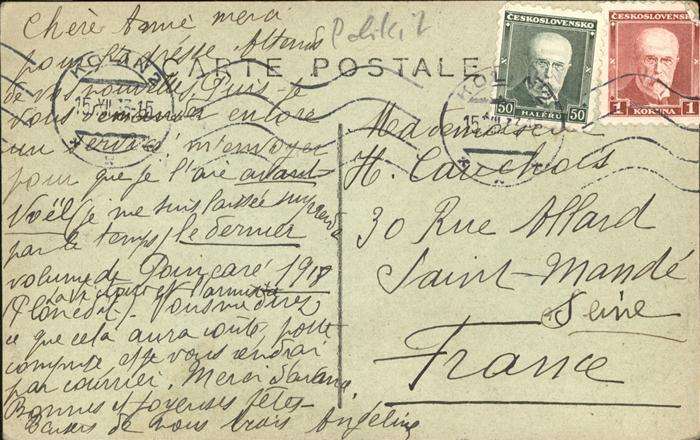 Chère Aimée merci
pour l'adresse. Attends
de vos nouvelles. Puis-je
vous demander encore
un service m'envoyer
pour que je l'aie avant
Noël (je me suis laissée surprendre
par le temps) le dernier
volume de Poincaré 1918
Victoire et l'armistice
(Plon édit). Vous me direz
ce que cela aura coûté, poste
comprise et je vous rendrai
par courrier. Merci d'avance
Bonnes et joyeuses fêtes
Baisers de nous trois Angéline
CARTE POSTALE
KOLÍN 2
15.XII.33-15
ČESKOSLOVENSKO
50 HALÉŘŮ 50
ČESKOSLOVENSKO
1 KORUNA 1
KOLÍN
15.XII
Mademoiselle
H. Cauchois
30 Rue Allard
Saint-Mandé
Seine
France